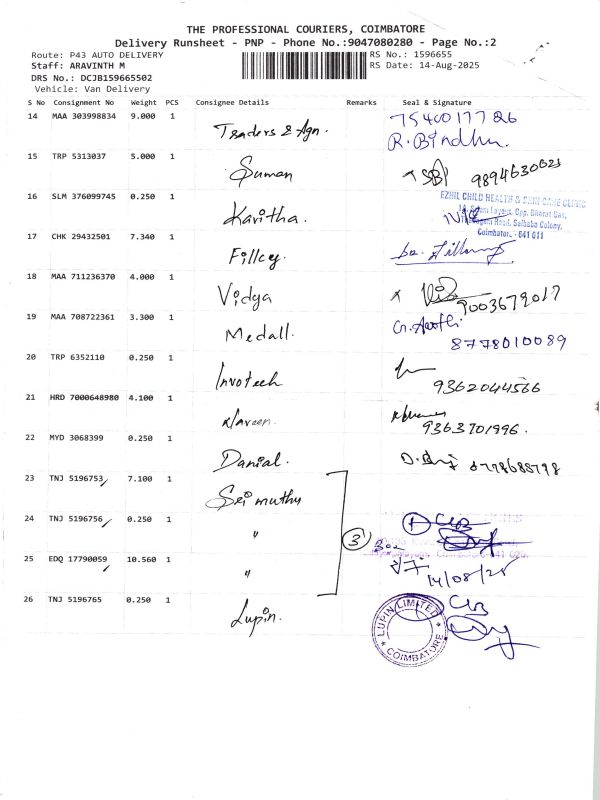 THE PROFESSIONAL COURIERS, COIMBATORE
Delivery Runsheet - PNP - Phone No.:9047080280 - Page No.:2
Route: P43 AUTO DELIVERY
RS No.: 1596655
Staff: ARAVINTH M
RS Date: 14-Aug-2025
DRS No.: DCJB159665502
Vehicle: Van Delivery
S No Consignment No Weight PCS Consignee Details Remarks Seal & Signature
14 MAA 303998834 9.000 1 Traders & Agn. 7540017726
R. Bindhu.
15 TRP 5313037 5.000 1 Suman 9894630623
16 SLM 376099745 0.250 1 Kavitha.
EZHIL CHILD HEALTH & SKIN CARE CLINIC
Layout, Opp. Bharat Gas,
Road, Saibaba Colony,
Coimbatore. - 641 011
17 CHK 29432501 7.340 1 Fillcey.
18 MAA 711236370 4.000 1 Vidya x 9003679017
19 MAA 708722361 3.300 1 Medall.
8778010089
20 TRP 6352110 0.250 1 Invotech
9362044566
21 HRD 7000648980 4.100 1 Naveen.
9363701996.
22 MYD 3068399 0.250 1 Danial.
23 TNJ 5196753 7.100 1 Sri muthu
24 TNJ 5196756 0.250 1 "
3
25 EDQ 17790059 10.560 1 "
14/08/25
26 TNJ 5196765 0.250 1 Lupin.
LUPIN LIMITED
COIMBATORE